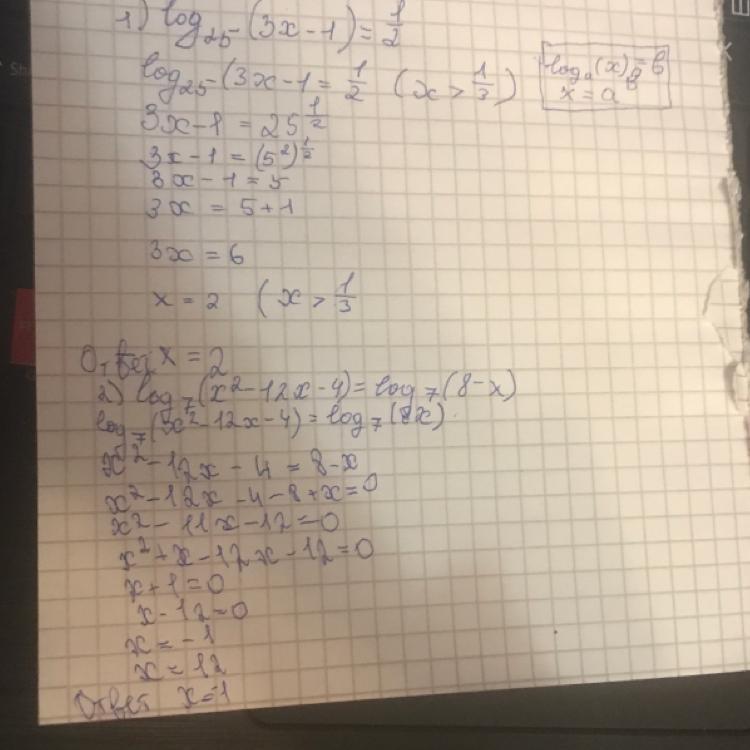 1) log₂₅(3x-1)=1/2
log₂₅(3x-1=1/2 (x>1/3)
logₐ(x)=b
x=aᵇ
3x-1=25^1/2
3x-1=(5²)^1/2
3x-1=5
3x=5+1
3x=6
x=2 (x>1/3
Ответ x=2
2) log₇(x²-12x-4)=log₇(8-x)
log₇(x²-12x-4)=log₇(8x)
x²-12x-4=8-x
x²-12x-4-8+x=0
x²-11x-12=0
x²+x-12x-12=0
x+1=0
x-12=0
x=-1
x=12
Ответ x=-1